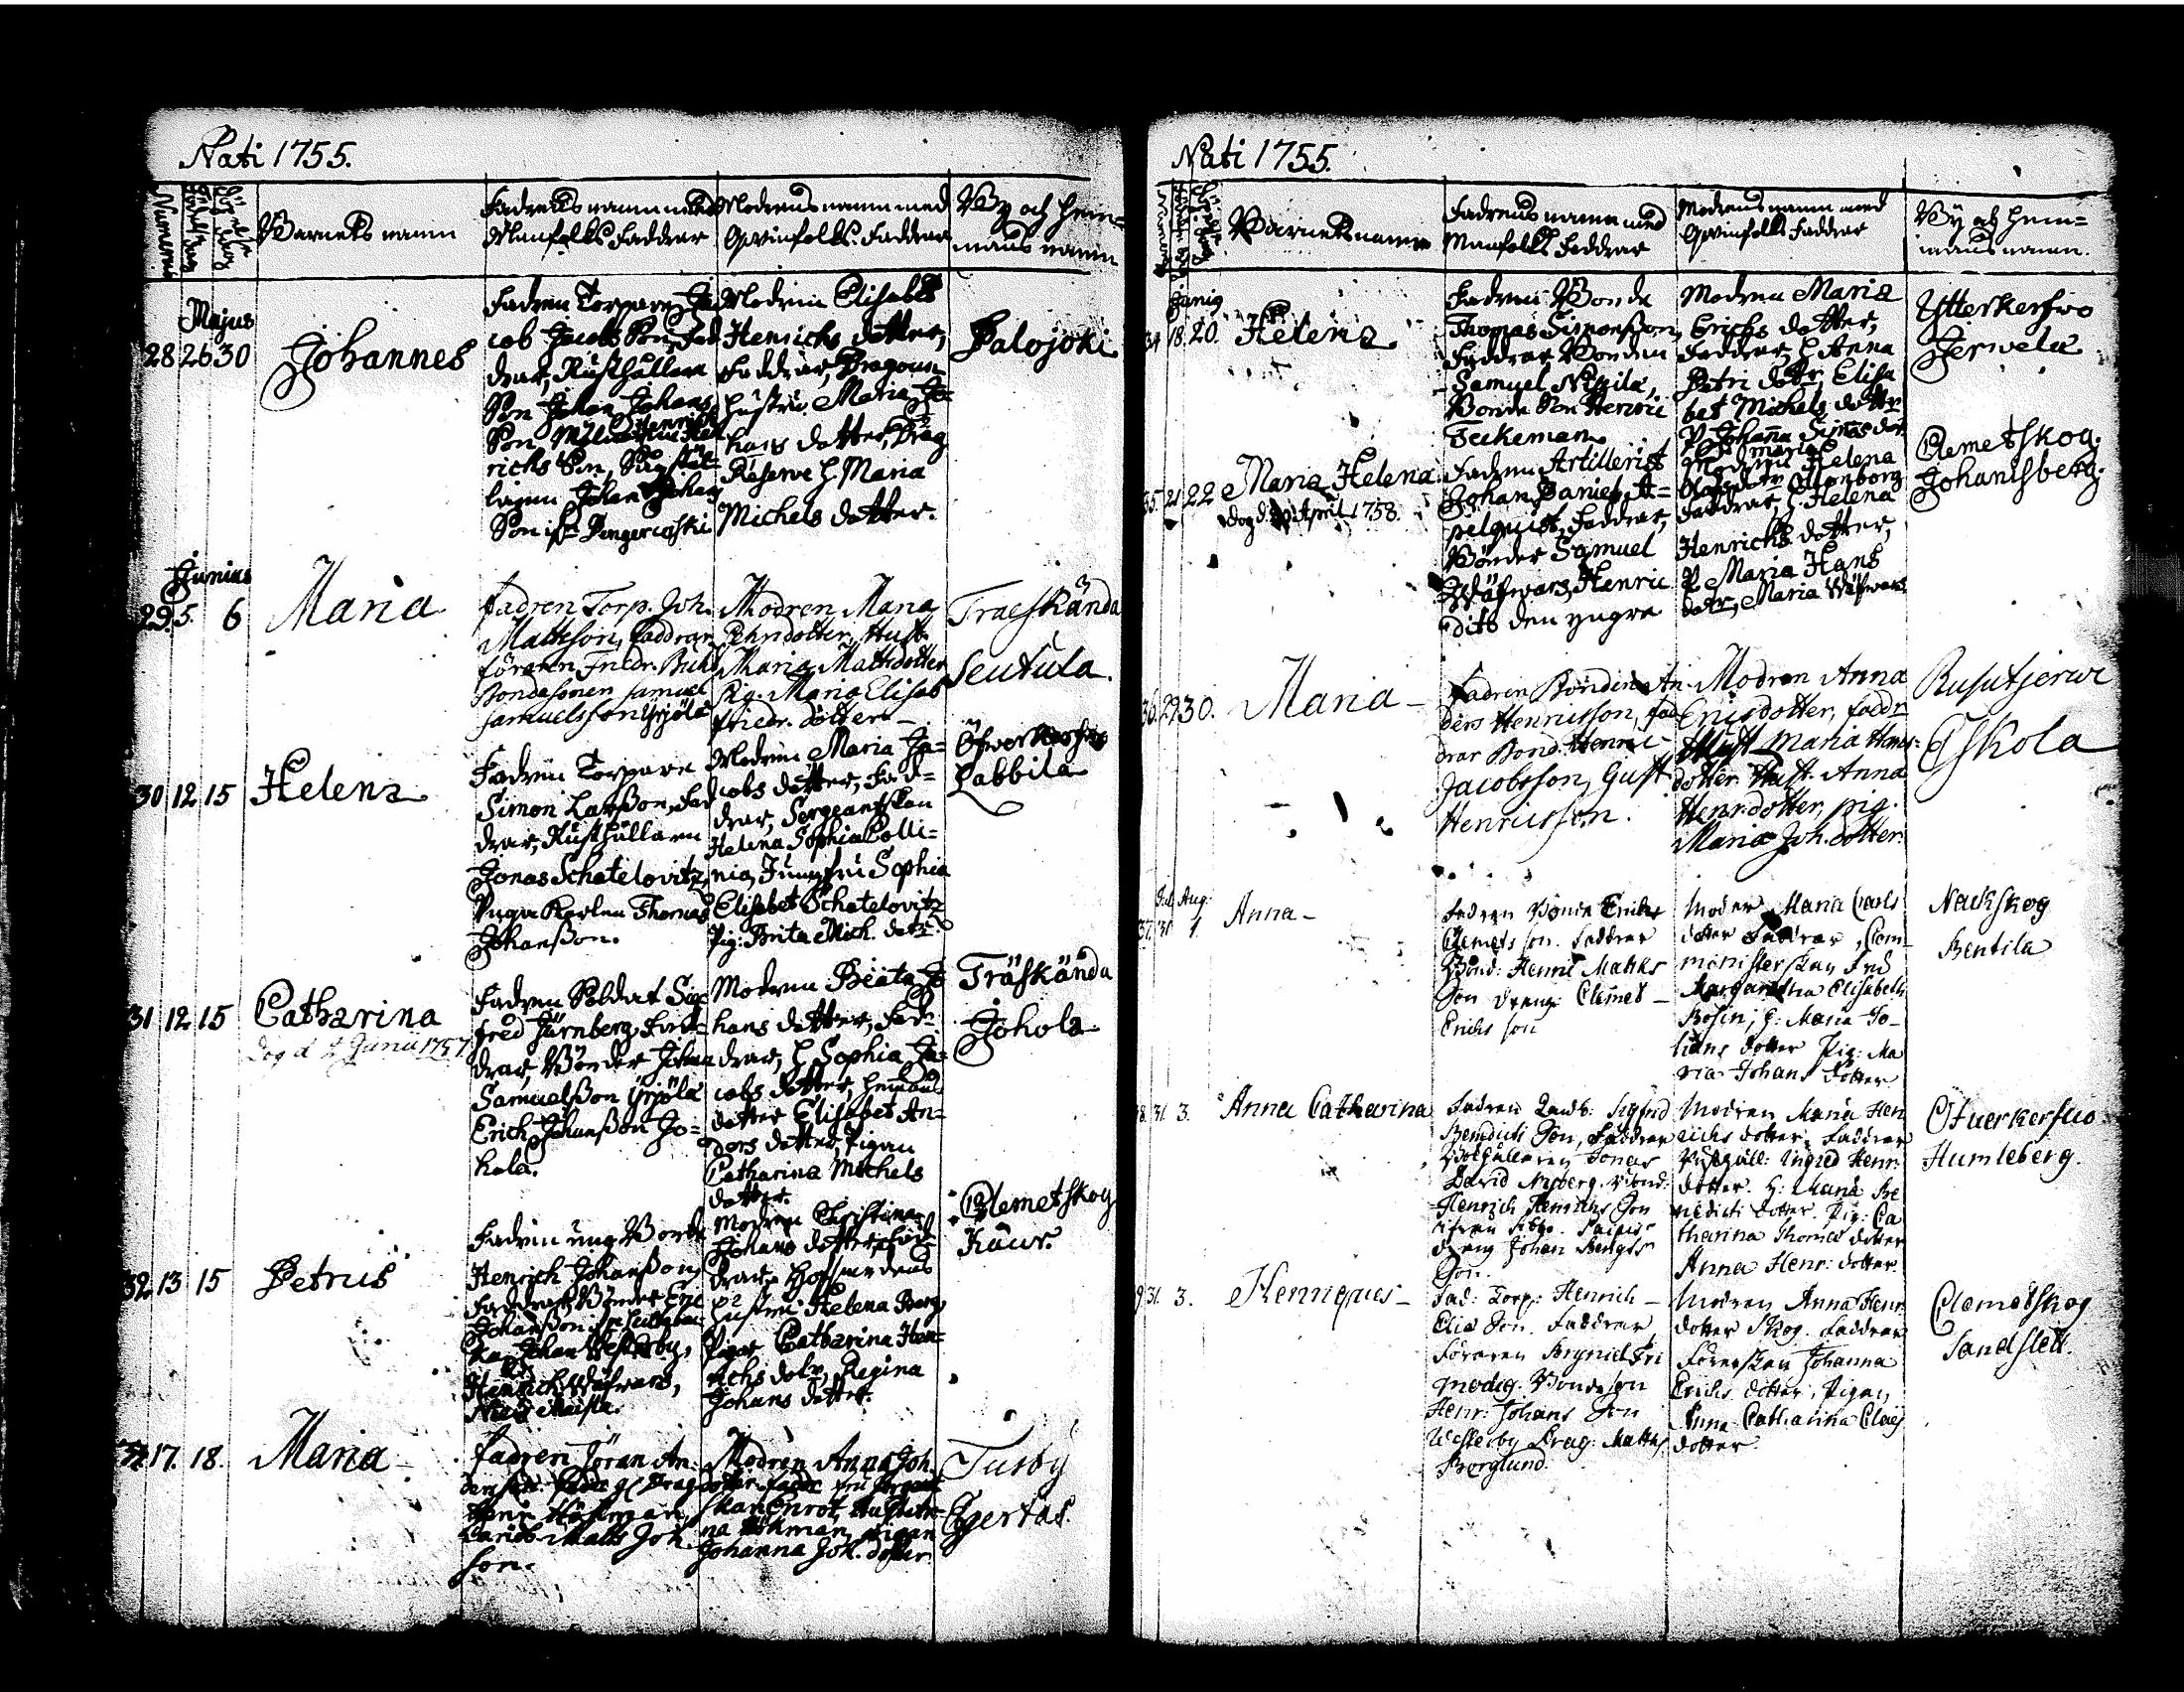 Nati 1755.
Numerus
Barnets namn
Fadrens namn med Manfolks Faddrar
Modrens namn med Qvinfolks Faddrar
By och hemmans namn
Majus
28 26 30 Johannes
Fadren Torpare Ja
cob Jacobs Son, Fad
drar, Rusthållare
Son Johan Johans
Son
Henrich
richs Son,
Johan Johan
Son
Modren Elisabet
Henrichs dotter,
Faddrar, Dragoun
hustru Maria Jo-
hans dotter, Drag
Reserve h. Maria
Michels dotter.
Palojoki
Junius
29. 5. 6 Maria
fadren Torp. Joh.
Mattsson, faddrar
föraren Friedr. Buhl
Bondesonen Samuel
Samuelsson Yrjölä
Modren Maria
dotter, Hust.
Maria Mattsdotter
Pig. Maria Elisab
friedr. dotter
Traeskända
Seutula.
30 12 15 Helena
Fadren Torpare
Simon Larsson, Fad
drar, Rusthållaren
Jonas Schatelovitz,
Unga Karlen Thomas
Johansson.
Modren Maria Ja-
cobs dotter, Fad-
drar, Sergeantskan
Helena Sophia Polli-
nia, Jungfru Sophia
Elisabet Schatelovitz
Pig: Brita Mich. dotr.
Öfwerkerfwo
Labbila
31 12 15 Catharina
dog d. 2 Junii 1757
Fadren Soldat Sig
fred Järnberg, Fad-
drar, Bönder Johan
Samuelsson Yrjölä
Erich Johansson Jo-
hola.
Modren Beata Jo
hans dotter, Fad-
drar, h. Sophia Ja-
cobs dotter,
dotter Elisabet An-
ders dotter, Pigan
Catharina Michels
dotter.
Träskända
Johola
32. 13 15 Petrus
Fadren ung Bonde
Henrich Johansson
Faddrar, Bönder Eric
Johansson
Johan Westerby,
Henrich Wäfwars,
Nils
Modren Christina
Johans dotter, Fad
drar,
hustru Helena Berg,
Pigor Catharina Hen-
richs dotr, Regina
Johans dotter.
Clemetskog
Kaur.
33 17. 18. Maria
fadren Jöran An-
dersson. fadd. Drag
Henr. Hökman,
Matts Joh.
son.
Modren Anna Joh.
dotter fadd.
skan Enrot, Hust.
na Hökman, pigan
Johanna Joh. dotter.
Tusby
Gertas.
Nati 1755.
Barnets namn
Fadrens namn med
Manfolks Faddrar
Modrens namn med
Qvinfolks Faddrar
By och hem-
mans namn.
Junius
34 18. 20. Helena
Fadren Bonde
Thomas Simonsson,
Faddrar Bonden
Samuel Nissila,
Bonde Son Henric
Teckeman
Modren Maria
Erichs dotter,
Faddrar, h. Anna
Petri dotr, Elisa
bet Michels dotter
P. Johanna Simos dotr
Ytterkerfwo
Jerwelä
35. 21 22 Maria Helena.
dog d. April 1758.
Fadren Artillerist
Johan Daniel A-
pelquist, Faddrar,
Bönder Samuel
Wäfwars, Henric
dito den yngra
Maria
Modren Helena
Olofs dotr Ottenborg
Faddrar, h. Helena
Henrichs dotter,
P. Maria Hans
dotr, Maria Wäfwars
Clemetskog.
Johansberg.
36. 29 30. Maria
Fadren Bonden An
ders Henricsson, fad
drar Bond. Henric
Jacobsson, Gust.
Henricsson.
Modren Anna
Ericsdotter, faddr
Hust. Maria Hans
dotter. Hust. Anna
Henr. dotter, pig.
Maria Joh. dotter.
Rusutjerwi
Eskola
Jul. Aug.
37. 30 1. Anna
Fadren Bonde Erich
Clemets son. Faddrar
Bond: Henric Matts
Son dräng Clemet
Erichs son
Moder Maria Carls
dotter Faddrar,
ministerskan Fru
Margaretha Elisabeth
Bosin; h: Maria Jo-
hans dotter Pig: Ma
ria Johans dotter
Nackskog
Bentila
38. 31. 3. Anna Catharina
Fadren Landb: Sigfrid
Benedicts Son, Faddrar
Jonas
David Nyberg. Bond:
Henrich Henrichs Son
dräng Johan Bengts
Son.
Modren Maria Hen
richs dotter. Faddrar
Rusthåll: Ingred Henr:
dotter. H: Maria Be
nedicti dotter. Pig: Ca
tharina Thomas dotter
Anna Henr: dotter.
Öfwerkerfwo
Humleberg.
39 31. 3. Henricus
Fad: Torp: Henrich
Elia Son. Faddrar
Föraren Brynild Fri
modig. Bondeson
Henr: Johans Son
Westerby Drag: Matths.
Berglund.
Modren Anna Henr
dotter Skog. Faddrar
Förerskan Johanna
Erichs dotter, Pigan
Anna Catharina Claes
dotter
Clemetskog
Sandslett.